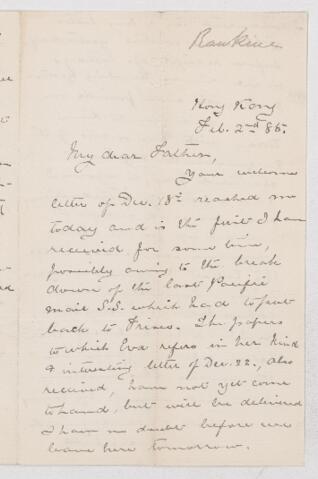 Rankine
Hong Kong
Feb. 2nd 86.
My dear Father,
Your welcome
letter of Dec. 18th reached me
today and is the first I have
received for some time,
possibly owing to the break
down of the last Pacific
mail S.S. which had to put
back to Frisco. The papers
to which Eva refers in her kind
& interesting letter of Dec. 22, also
received, have not yet come
to hand, but will be delivered
I have no doubt before we
leave here tomorrow.